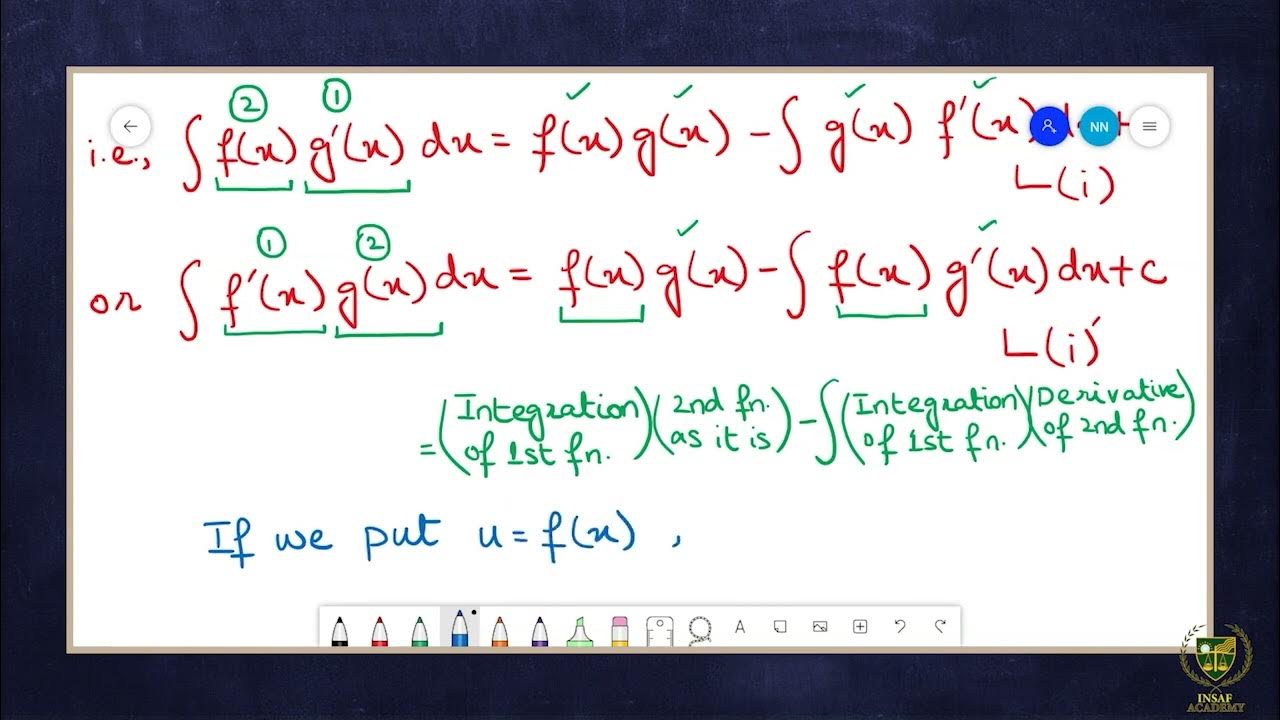 ② ①
i.e., ∫ f(x) g'(x) dx = f(x) g(x) - ∫ g(x) f'(x)
NN
(i)
① ②
or ∫ f'(x) g(x) dx = f(x) g(x) - ∫ f(x) g'(x) dx + c
(i)'
= (Integration of 1st fn.) (2nd fn. as it is) - ∫ (Integration of 1st fn.) (Derivative of 2nd fn.)
If we put u = f(x) ,
A
INSAF
ACADEMY